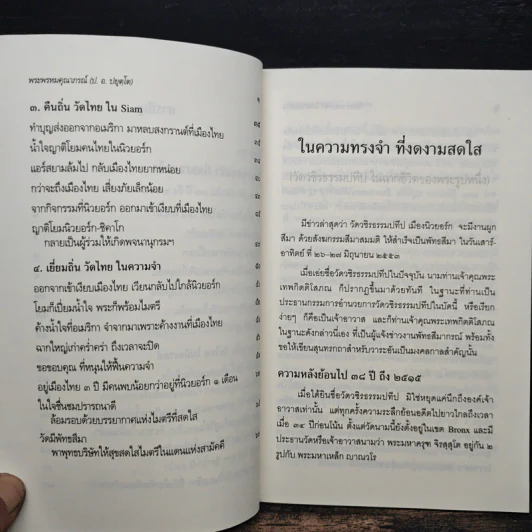 พระพรหมคุณาภรณ์ (ป. อ. ปยุตฺโต)
๓. คืนถิ่น วัดไทย ใน Siam
ทำบุญส่งออกจากอเมริกา มาหลบสงกรานต์ที่เมืองไทย
น้ำใจญาติโยมคนไทยในนิวยอร์ก
แอร์สยามล้มไป กลับเมืองไทยยากหน่อย
กว่าจะถึงเมืองไทย เสี่ยงภัยเล็กน้อย
จากกิจกรรมที่นิวยอร์ก ออกมาเข้าเงียบที่เมืองไทย
ญาติโยมนิวยอร์ก-ชิคาโก
กลายเป็นผู้ร่วมให้เกิดพจนานุกรมฯ
๔. เยี่ยมถิ่น วัดไทย ในความจำ
ออกจากเข้าเงียบเมืองไทย เวียนกลับไปใกล้นิวยอร์ก
โยมก็เปี่ยมน้ำใจ พระก็พร้อมไมตรี
ค้างน้ำใจที่อเมริกา จำจากมาเพราะค้างงานที่เมืองไทย
ฉากใหญ่เก่าคร่ำคร่า ถึงเวลาจะปิด
ขอขอบคุณ ที่หนุนให้ฟื้นความจำ
อยู่เมืองไทย ๓ ปี มีคนพบน้อยกว่าอยู่ที่นิวยอร์ก ๑ เดือน
ในใจชื่นชมปรารถนาดี
ล้อมรอบด้วยบรรยากาศแห่งไมตรีที่สดใส
วัดมีพัทธสีมา
พาพุทธบริษัทให้สุขสดใสไมตรีในแดนแห่งสามัคคี
ในความทรงจำ ที่งดงามสดใส
(วัดวชิรธรรมปทีป ในถาคชีวิตของพระรูปหนึ่ง)
มีข่าวล่าสุดว่า วัดวชิรธรรมปทีป เมืองนิวยอร์ก จะมีงานผูก
สีมา ด้วยสังฆกรรมสีมาสมมติ ให้สำเร็จเป็นพัทธสีมา ในวันเสาร์-
อาทิตย์ ที่ ๒๖-๒๗ มิถุนายน ๒๕๕๓
เมื่อเอ่ยชื่อวัดวชิรธรรมปทีปในปัจจุบัน นามท่านเจ้าคุณพระ
เทพกิตติโสภณ ก็ปรากฏขึ้นมาด้วยทันที ในฐานะที่ท่านเป็น
ประธานกรรมการอำนวยการวัดวชิรธรรมปทีปในบัดนี้ หรือเรียก
ง่ายๆ ก็คือเป็นเจ้าอาวาส และก็ท่านเจ้าคุณพระเทพกิตติโสภณ
ในฐานะดังกล่าวนี่เอง ที่เป็นผู้แจ้งข่าวงานพัทธสีมาภิกรณ์ พร้อมทั้ง
ขอให้เขียนสุนทรกถาสำหรับวาระอันเป็นมงคลกาลสำคัญนั้น
ความหลังย้อนไป ๓๘ ปี ถึง ๒๕๑๕
เมื่อได้ยินชื่อวัดวชิรธรรมปทีป มิใช่หยุดแค่นึกถึงองค์เจ้า
อาวาสเท่านั้น แต่ทุกครั้งความระลึกย้อนอดีตไปยาวไกลถึงเวลา
เมื่อ ๓๔ ปีก่อนโน้น ตั้งแต่วัดนามนี้ยังตั้งอยู่ในเขต Bronx และมี
ประธานวัดหรือเจ้าอาวาสนามว่า พระมหาครุฑ จิรสุสุโต อยู่กัน ๒
รูปกับ พระมหาเหลิก ญาณวโร